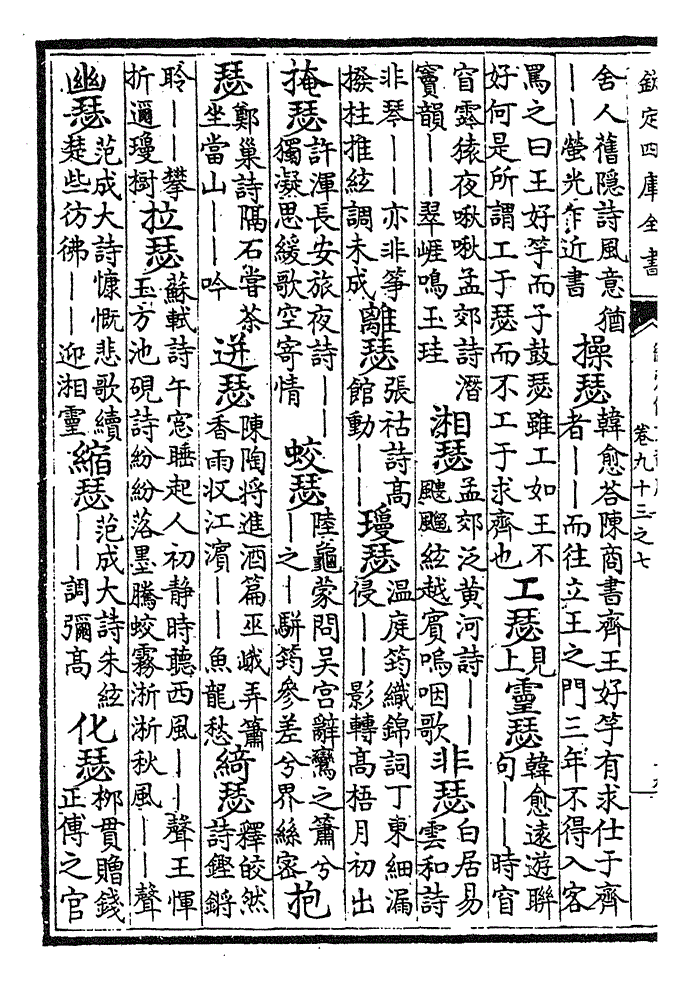 欽定四庫全書
卷九十三之七
舍人舊隱詩風意猶
——螢光乍近書
操瑟
韓愈答陳商書齊王好竽有求仕于齊
者——而往立王之門三年不得入客
罵之曰王好竽而子鼓瑟雖工如王不
好何是所謂工于瑟而不工于求齊也
工瑟
見
上
靈瑟
韓愈遠遊聯
句——時窅
窅靈猿夜啾啾孟郊詩潛
竇韻——翠崕鳴玉珪
湘瑟
孟郊泛黄河詩——
颼飀絃越賓嗚咽歌
非瑟
白居易
雲和詩
非琴——亦非箏
撥柱推絃調未成
離瑟
張祜詩高
館動——
瓊瑟
溫庭筠織錦詞丁東細漏
侵——影轉高梧月初出
掩瑟
許渾長安旅夜詩——
獨凝思緩歌空寄情
蛟瑟
陸龜蒙問吳宮辭鸞之簫兮
—之—駢筠參差兮界絲密
抱
瑟
鄭巢詩隔石嘗茶
坐當山——吟
迸瑟
陳陶將進酒篇巫峨弄簫
香雨収江濵——魚龍愁
綺瑟
釋皎然
詩鏗鏘
聆——攀
折邇瓊樹
拉瑟
蘇軾詩午窓睡起人初静時聽西風——聲王惲
玉方池硯詩紛紛落墨騰蛟霧淅淅秋風——聲
幽瑟
范成大詩慷慨悲歌續
楚些彷彿——迎湘靈
縮瑟
范成大詩朱絃
——調彌髙
化瑟
栁貫贈錢
正傅之官